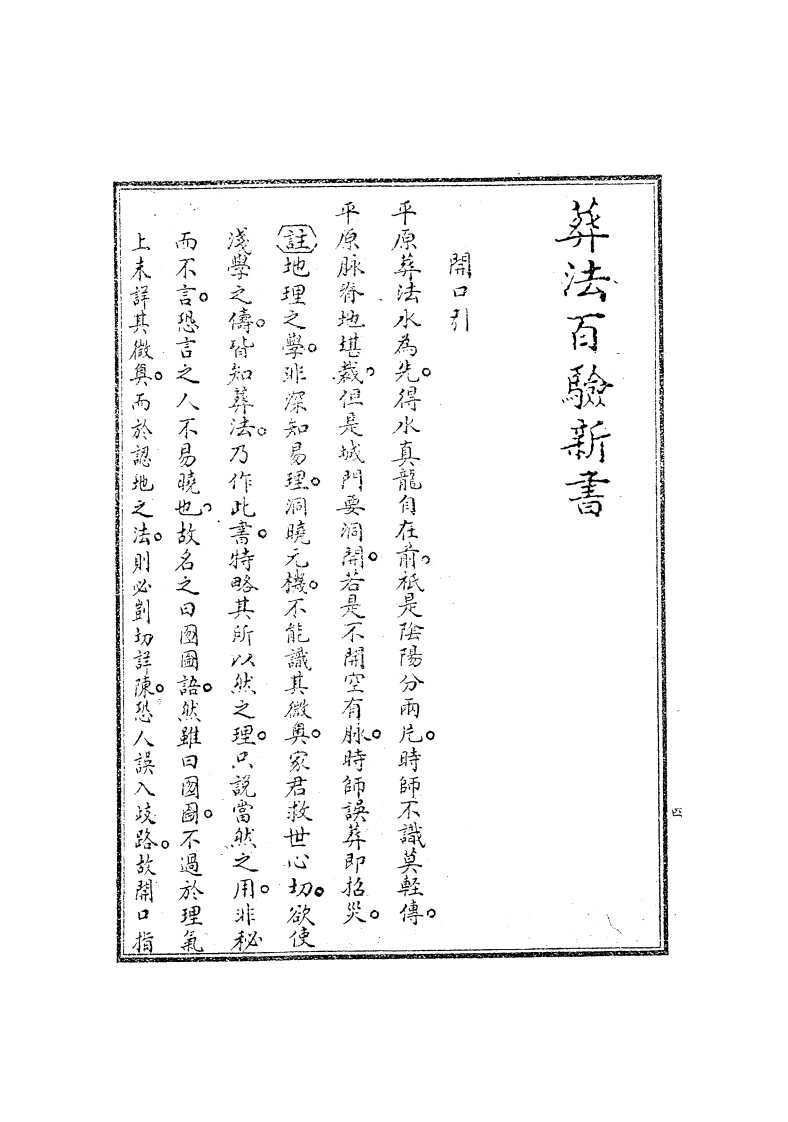 葬法百驗新書
開口引
平原葬法水為先。得水真龍自在前，祇是陰陽分兩片。時師不識莫輕傳。
平原脉脊地堪裁，但是城門要洞開。若是不開空有脉。時師誤葬即招災。
註地理之學。非深知易理。洞曉元機。不能識其微奧。家君救世心切。欲使
淺學之儔。皆知葬法。乃作此書。特略其所以然之理。只說當然之用。非秘
而不言。恐言之人不易曉也，故名之曰囫圇語。然雖曰囫圇。不過於理氣
上未詳其微奧。而於認地之法。則必剴切詳陳。恐人誤入歧路。故開口指
四